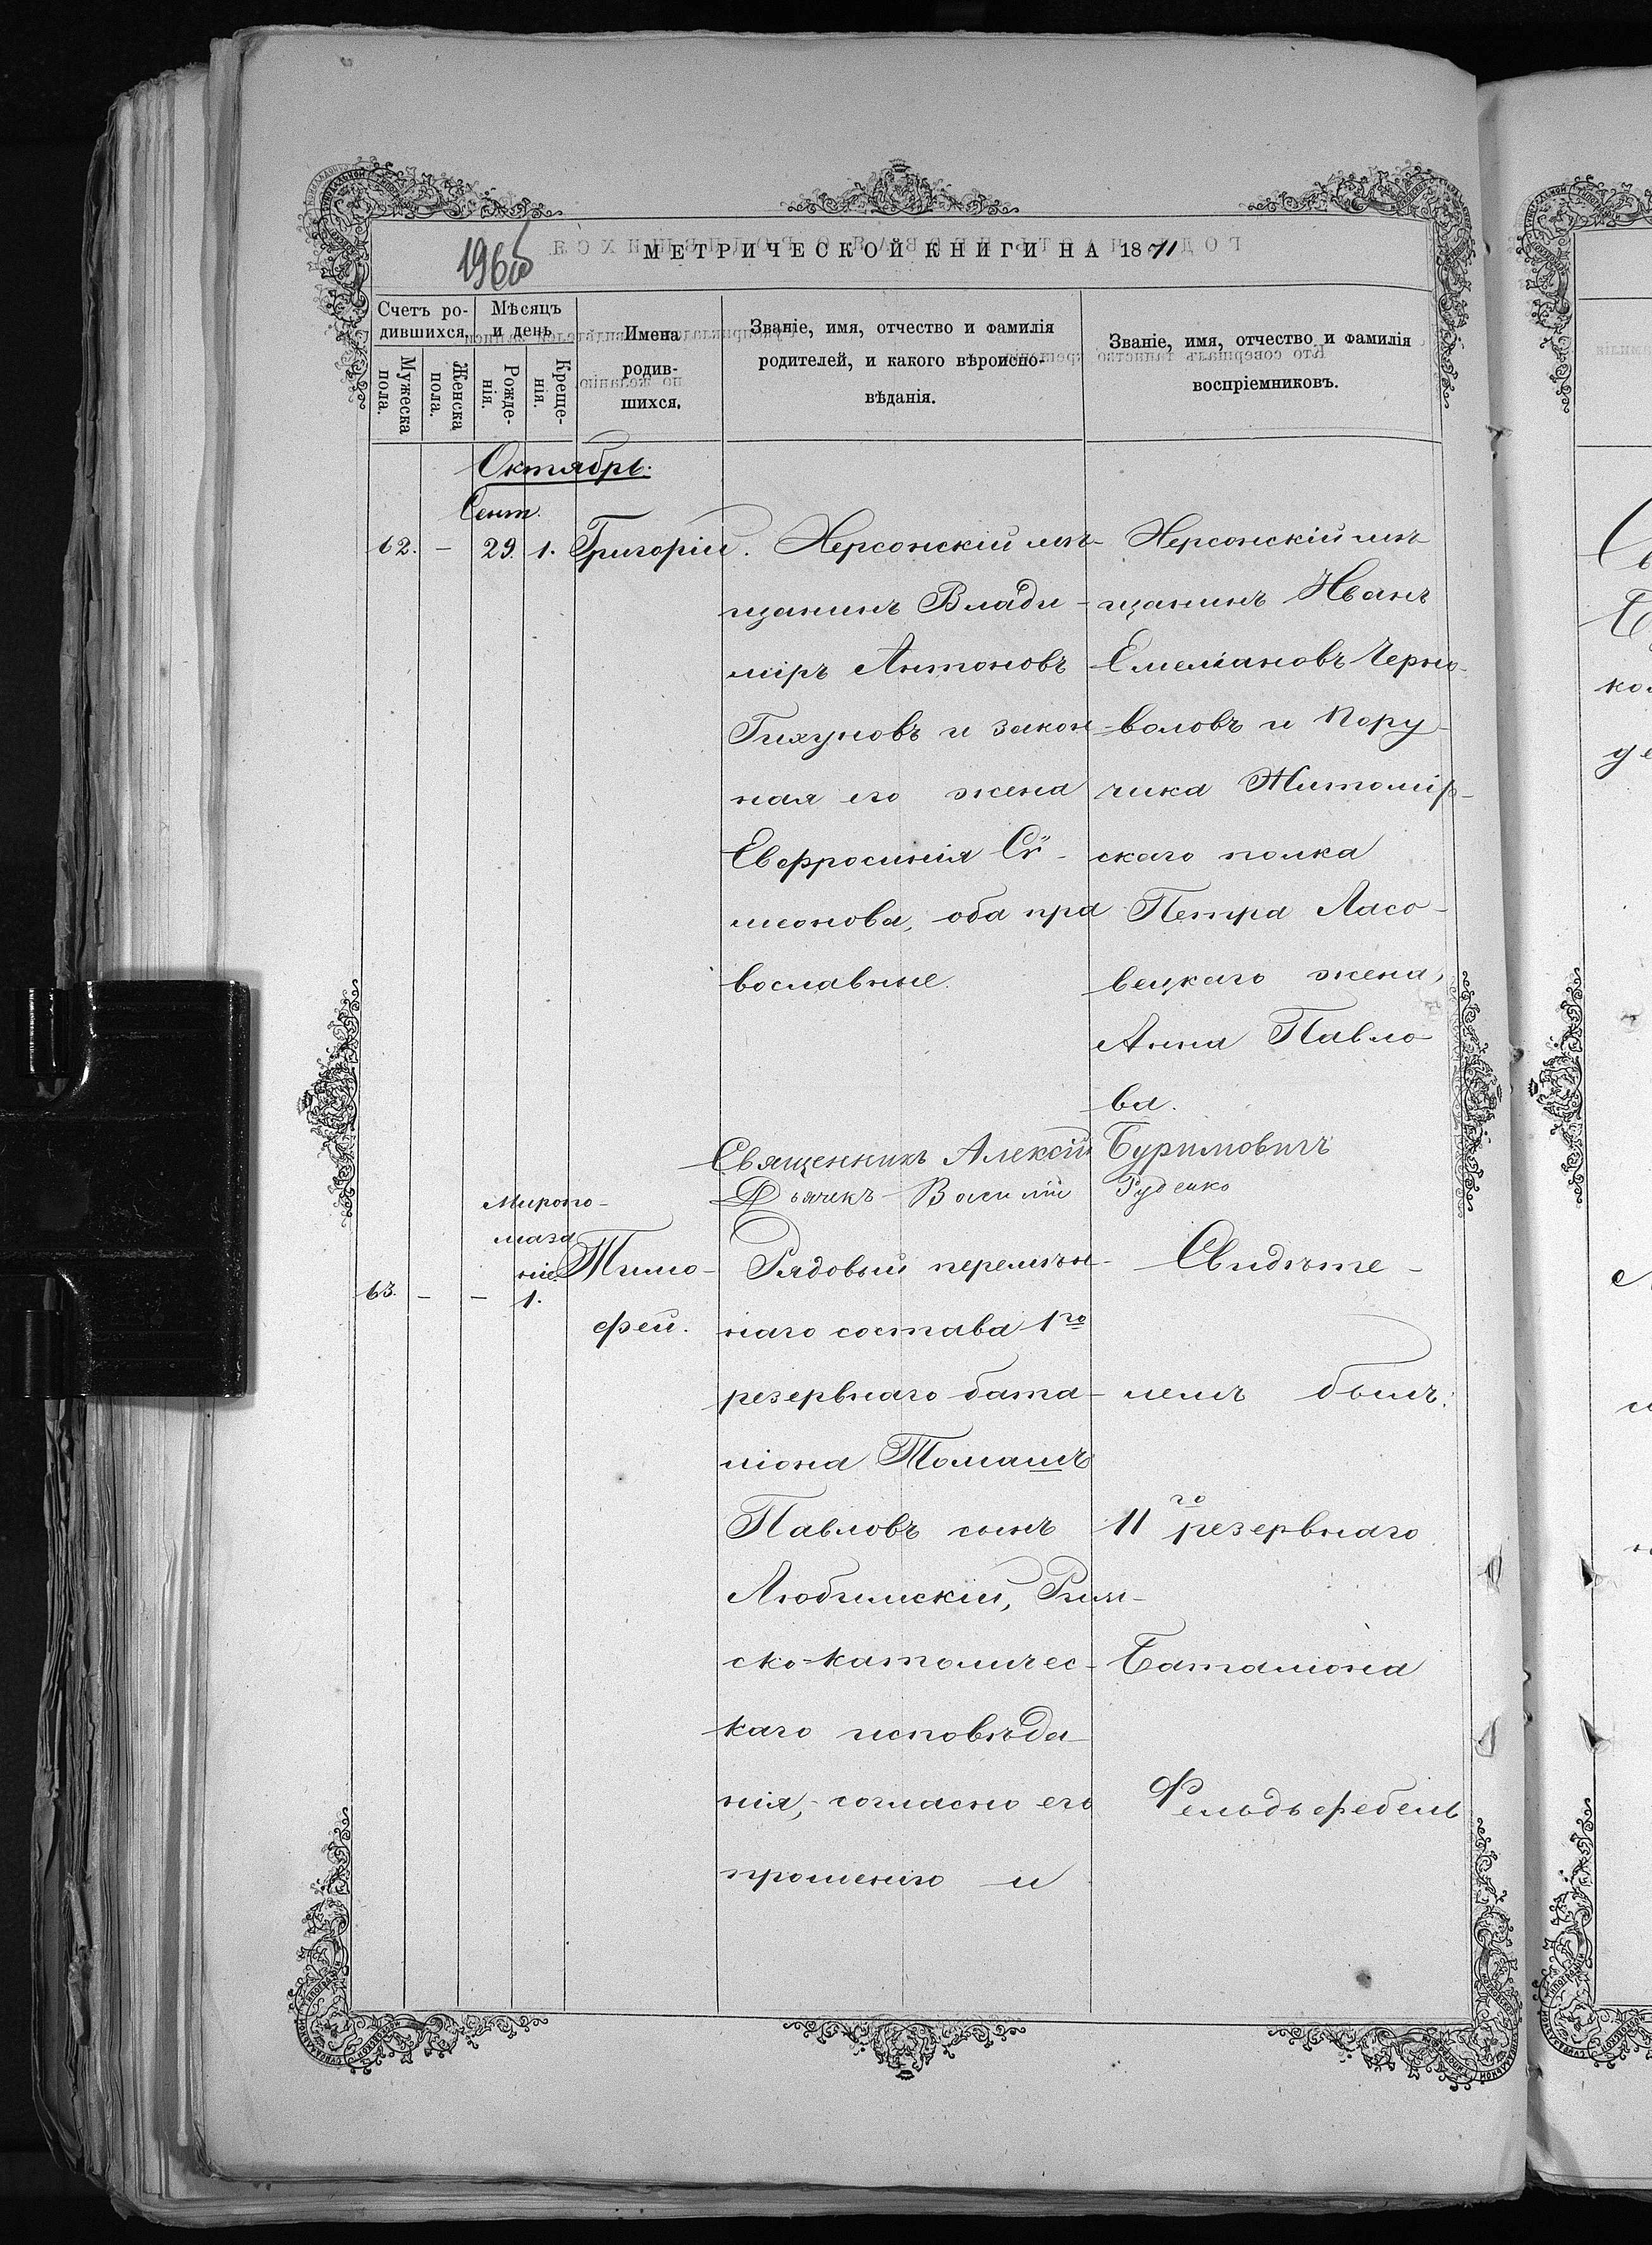 МЕТРИЧЕСКОЙ КНИГИ НА 1871
196об
Счетъ ро-
дившихся.
Мужеска
пола.
Женска
пола.
Мѣсяцъ
и день
Рожде-
нія.
Креще-
нія.
Имена
родив-
шихся.
Званіе, имя, отчество и фамилія
родителей, и какого вѣроиспо-
вѣданія.
Званіе, имя, отчество и фамилія
воспріемниковъ.
Октябрь.
Сент.
62. – 29. 1. Григорій.
Херсонскій мѣ-
щанинъ Влади-
міръ Антоновъ
Тихуновъ и закон-
ная его жена
Евфросинія Сѵ-
меонова, оба пра
вославные.
Херсонскій мѣ-
щанинъ Иванъ
Емеліановъ Черно-
воловъ и Пору-
чика Житомір-
скаго полка
Петра Ласо-
вецкаго жена,
Анна Павло-
ва.
Священникъ Алексій Буримовичъ
Дьячекъ Василій Руденко
Миропо-
маза
ніе.
63. – – 1.
Тимо-
фей.
Рядовый перемѣн-
наго состава 1го
резервнаго бата-
ліона Томашъ
Павловъ сынъ
Любимскій, Рим-
ско-католичес-
каго исповѣда-
нія, согласно его
прошенію и
Свидѣте-
лемъ былъ:
11го резервнаго
Баталіона
Фельдфебель